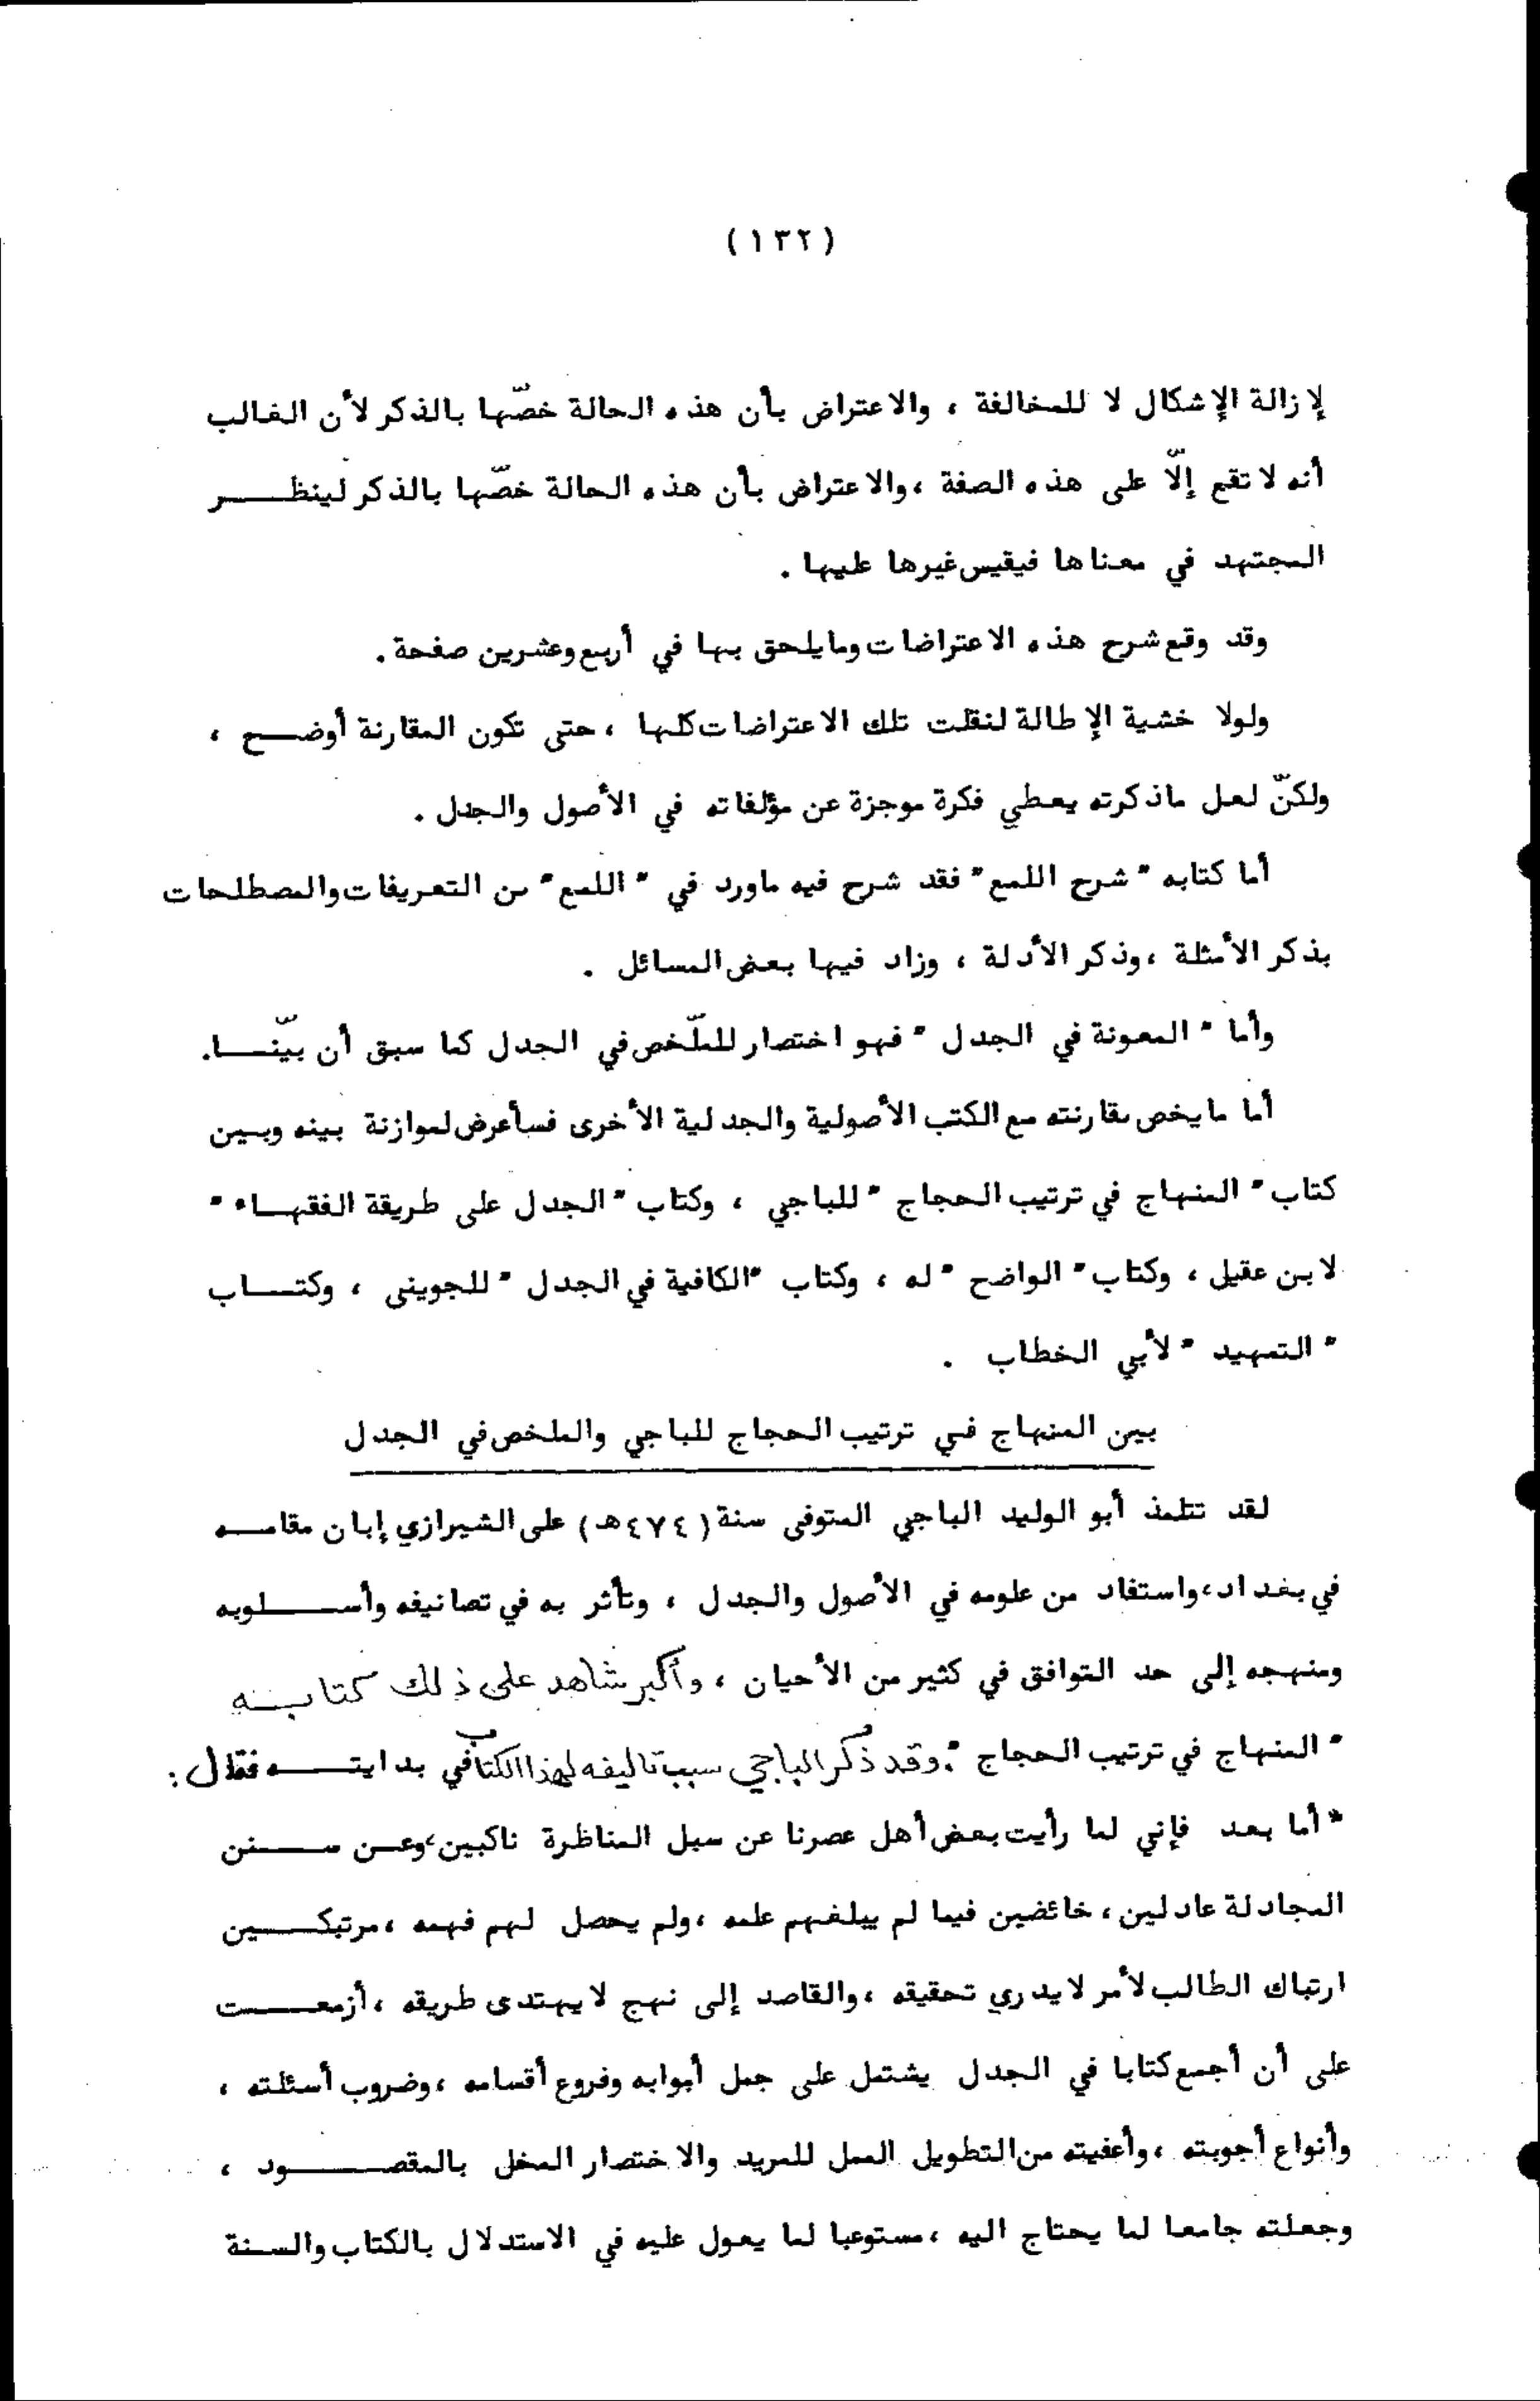 (١٣٢)
لإزالة الإشكال لا للمخالفة ، والاعتراض بأن هذه الحالة خصّها بالذكر لأن الغالب
أنه لا تقع إلاّ على هذه الصفة ،والاعتراض بأن هذه الحالة خصّها بالذكر لينظـــر
المجتهد في معناها فيقيس غيرها عليها .
وقد وقع شرح هذه الاعتراضات وما يلحق بها في أربع وعشرين صفحة .
ولولا خشية الإطالة لنقلت تلك الاعتراضات كلها ، حتى تكون المقارنة أوضــح ،
ولكنّ لعل ماذكرته يعطي فكرة موجزة عن مؤلفاته في الأصول والجدل .
أما كتابه " شرح اللمع " فقد شرح فيه ماورد في " اللمع " من التعريفات والمصطلحات
بذكر الأمثلة ،وذكر الأدلة ، وزاد فيها بعض المسائل .
وأما " المعونة في الجدل " فهو اختصار للملّخص في الجدل كما سبق أن بيّنــا.
أما ما يخص مقارنته مع الكتب الأصولية والجدلية الأخرى فسأعرض لموازنة بينه وبـين
كتاب " المنهاج في ترتيب الحجاج " للباجي ، وكتاب " الجدل على طريقة الفقهــاء "
لابن عقيل ، وكتاب " الواضح " له ، وكتاب "الكافية في الجدل " للجوينى ، وكتــاب
" التمهيد " لأبي الخطاب .
بين المنهاج في ترتيب الحجاج للباجي والملخص في الجدل
لقد تتلمذ أبو الوليد الباجي المتوفى سنة (٤٧٤هـ) على الشيرازي إبان مقامــه
في بغداد،واستفاد من علومه في الأصول والجدل ، وتأثر به في تصانيفه وأســـلوبه
ومنهجه إلى حد التوافق في كثير من الأحيان ، وأكبر شاهد على ذلك كتابــه
" المنهاج في ترتيب الحجاج ". وقد ذكر الباجي سبب تأليفه لهذا الكتاب في بدايتـــه فقال :
" أما بعد فإني لما رأيت بعض أهل عصرنا عن سبل المناظرة ناكبين،وعـن ســنن
المجادلة عادلين ، خائضين فيما لم يبلغهم علمه ،ولم يحصل لهم فهمه ،مرتبكـــين
ارتباك الطالب لأمر لا يدري تحقيقه ،والقاصد إلى نهج لا يهتدى طريقه ، أزمعــت
على أن أجمع كتابا في الجدل يشتمل على جمل أبوابه وفروع أقسامه ،وضروب أسئلته ،
وأنواع أجوبته ،وأعفيته من التطويل الممل للمريد والاختصار المخل بالمقصـــود ،
وجعلته جامعا لما يحتاج اليه ،مستوعبا لما يعول عليه في الاستدلال بالكتاب والسـنة